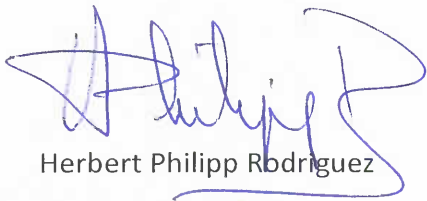 H Philipp R
Herbert Philipp Rodriguez